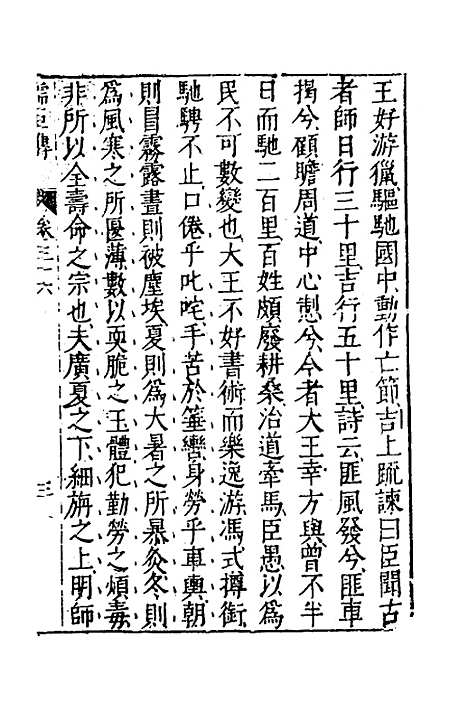 王好游獵驅馳國中動作亡節吉上疏諫曰臣聞古
者師日行三十里吉行五十里詩云匪風發兮匪車
揭兮顧瞻周道中心怛兮今者大王幸方輿曾不半
日而馳二百里百姓頗廢耕桑治道牽馬臣愚以為
民不可數變也大王不好書術而樂逸游馮式撙銜
馳騁不止口倦乎叱咤手苦於箠轡身勞乎車輿朝
則冒霧露晝則被塵埃夏則為大暑之所暴炙冬則
為風寒之所匽薄數以耎脆之玉體犯勤勞之煩毒
非所以全壽命之宗也夫廣夏之下細旃之上明師
儒臣傳 卷三十六 三